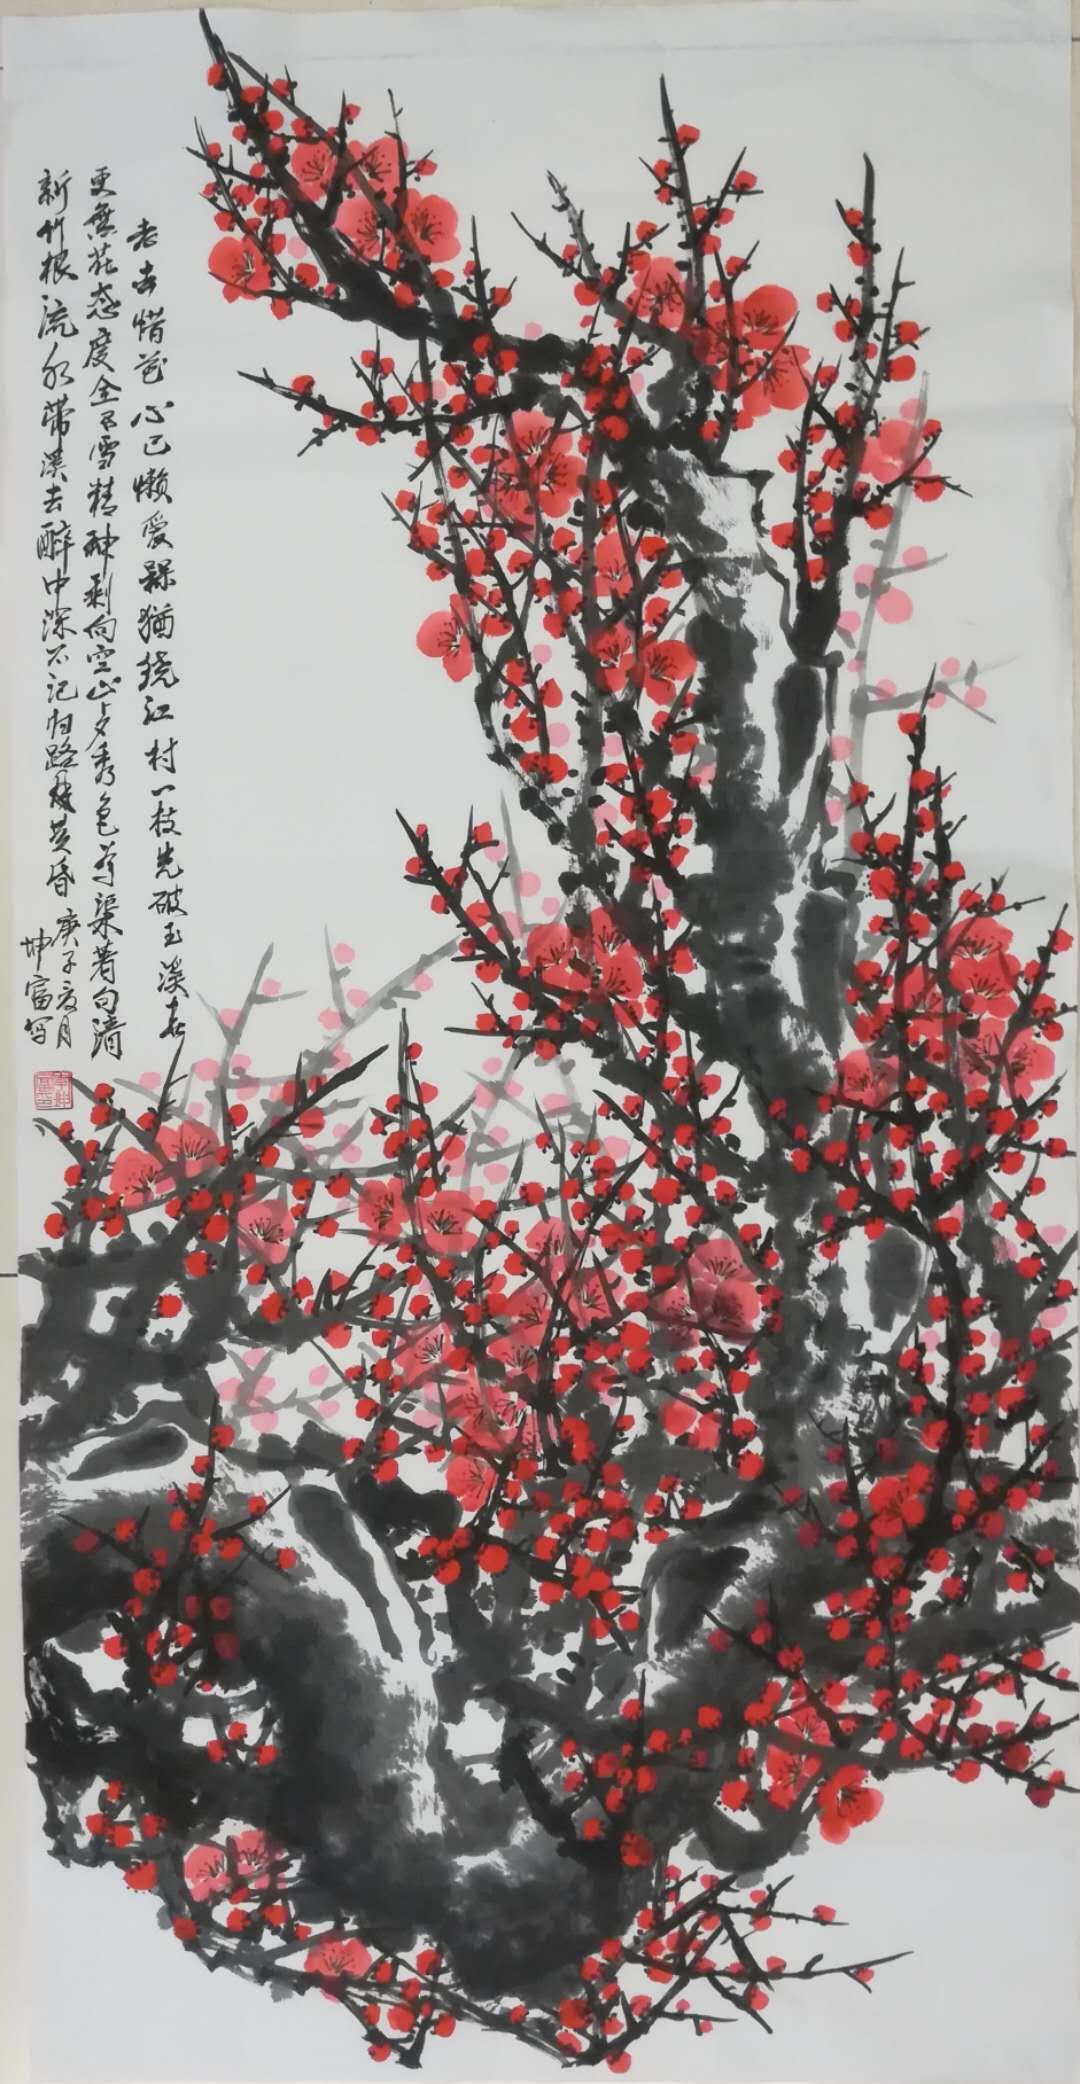 老去惜花心已懒爱梅犹绕江村一枝先破玉溪春
更無花态度全是雪精神剩向空山夕秀色为渠著句清
新竹根流水带溪去醉中深不记归路茂黄昏庚子亥月
坤富写